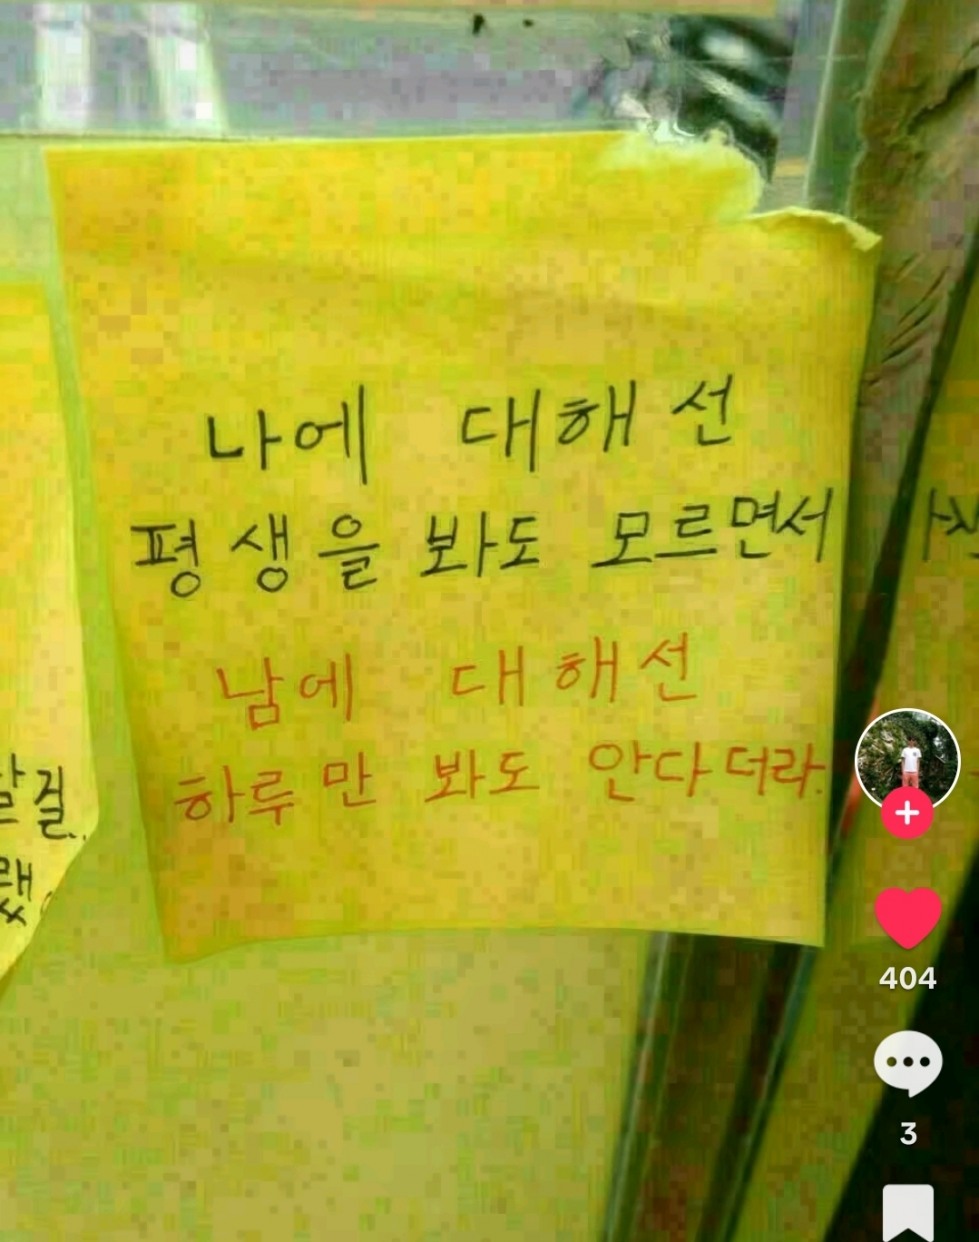 나에 대해선
평생을 봐도 모르면서
남에 대해선
하루만 봐도 안다더라.
404
3